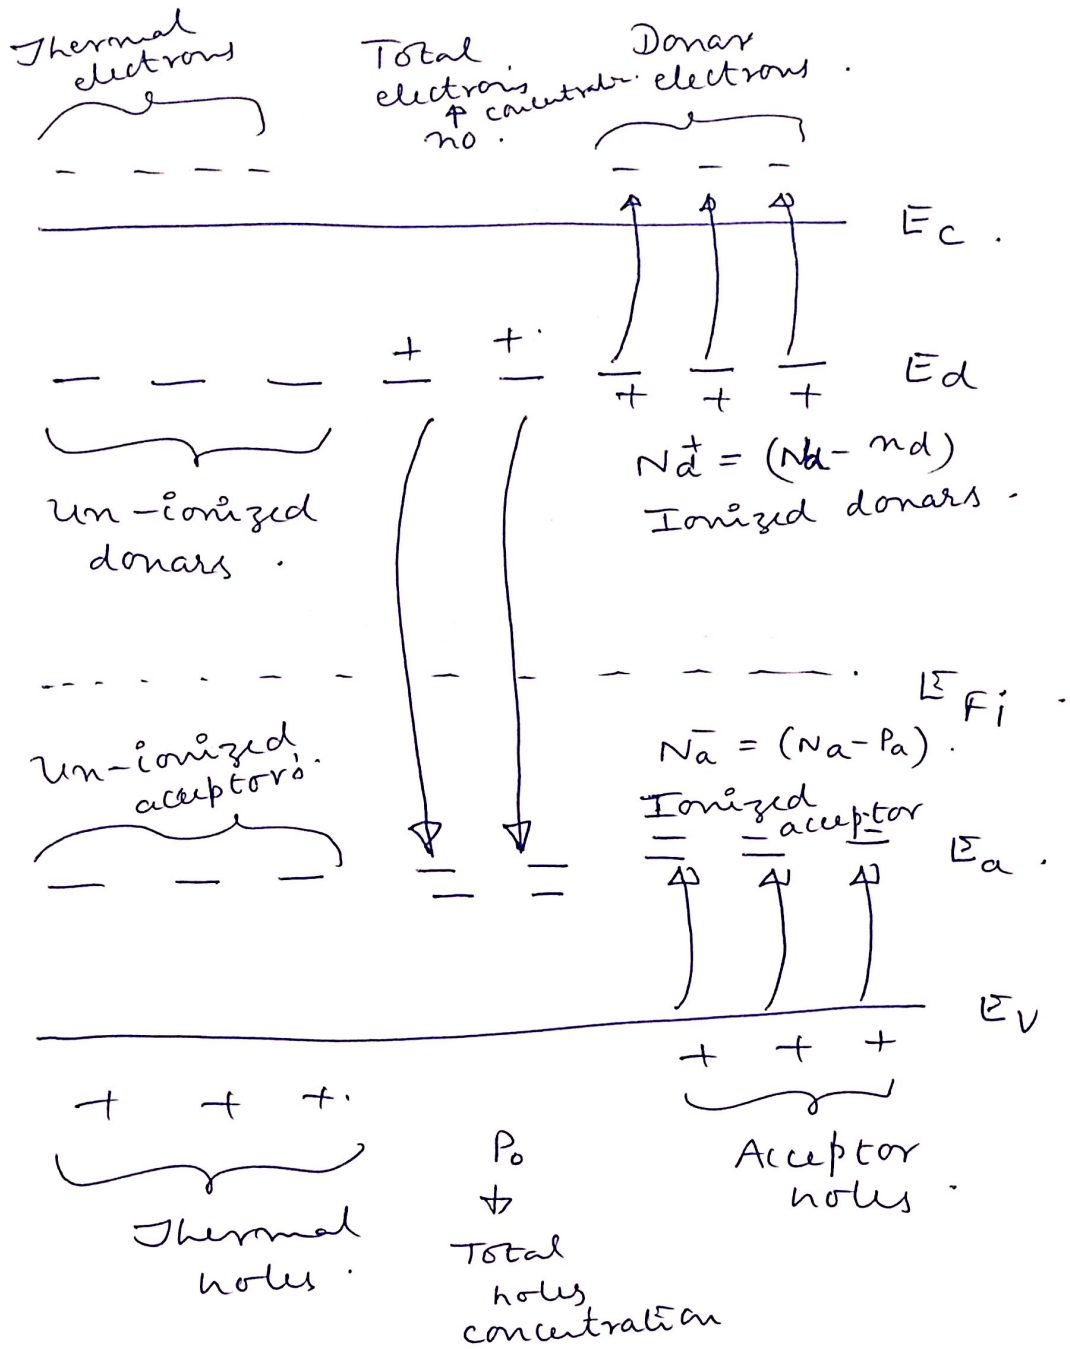 Thermal
electrons
Total
electrons concentratn.
no.
Donar
electrons.
Ec.
+ +
Ed
+ + +
Un-ionized
donars.
Nd+ = (Nd - nd)
Ionized donars.
EFi.
Un-ionized
acceptors.
Na- = (Na - Pa).
Ionized
acceptor
Ea.
Ev
+ + +
+ + +.
Thermal
holes.
Po
Total
holes
concentration
Acceptor
holes.